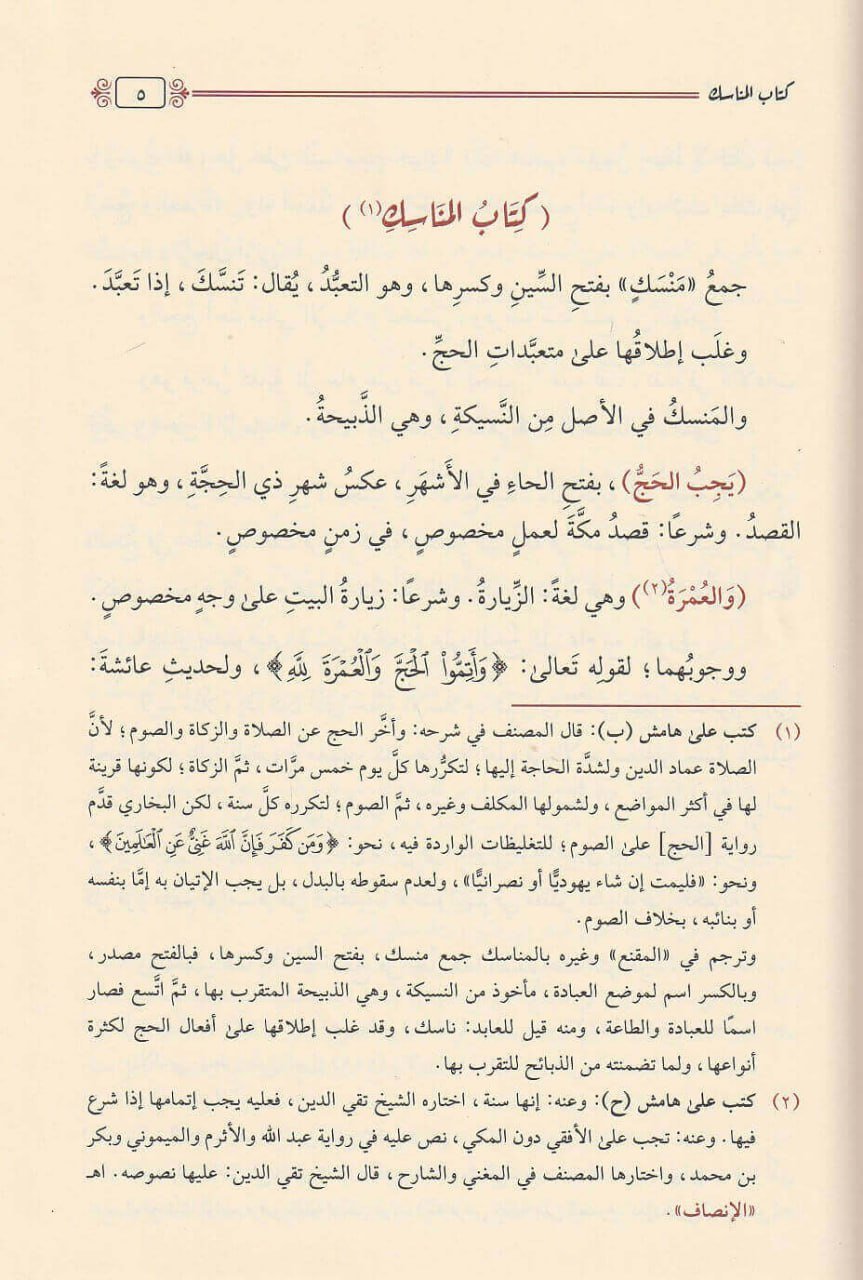 كتاب المناسك ٥
(كِتَابُ المَنَاسِكِ(١))
جمعُ «مَنْسَكٍ» بفتحِ السِّينِ وكسرِها، وهو التعبُّدُ، يُقال: تَنسَّكَ، إذا تَعبَّدَ.
وغلَب إطلاقُها علىٰ متعبَّداتِ الحجِّ.
والمَنسكُ في الأصل مِن النَّسيكةِ، وهي الذَّبيحةُ.
(يَجِبُ الحَجُّ)، بفتحِ الحاءِ في الأَشهَرِ، عكسُ شهرِ ذي الحِجَّةِ، وهو لغةً:
القصدُ. وشرعًا: قصدُ مكَّةَ لعملٍ مخصوصٍ، في زمنٍ مخصوصٍ.
(وَالعُمْرَةُ(٢)) وهي لغةً: الزِّيارةُ. وشرعًا: زيارةُ البيتِ علىٰ وجهٍ مخصوصٍ.
ووجوبُهما؛ لقولِه تَعالىٰ: ﴿وَأَتِمُّواْ ٱلْحَجَّ وَٱلْعُمْرَةَ لِلَّهِ﴾، ولحديثِ عائشةَ:
(١) كتب علىٰ هامش (ب): قال المصنف في شرحه: وأخَّر الحج عن الصلاة والزكاة والصوم؛ لأنَّ
الصلاة عماد الدين ولشدَّة الحاجة إليها؛ لتكرُّرها كلَّ يوم خمس مرَّات، ثمَّ الزكاة؛ لكونها قرينة
لها في أكثر المواضع، ولشمولها المكلف وغيره، ثمَّ الصوم؛ لتكرره كلَّ سنة، لكن البخاري قدَّم
رواية [الحج] علىٰ الصوم؛ للتغليظات الواردة فيه، نحو: ﴿وَمَن كَفَرَ فَإِنَّ ٱللَّهَ غَنِيٌّ عَنِ ٱلْعَٰلَمِينَ﴾،
ونحو: «فليمت إن شاء يهوديًّا أو نصرانيًّا»، ولعدم سقوطه بالبدل، بل يجب الإتيان به إمَّا بنفسه
أو بنائبه، بخلاف الصوم.
وترجم في «المقنع» وغيره بالمناسك جمع منسك، بفتح السين وكسرها، فبالفتح مصدر،
وبالكسر اسم لموضع العبادة، مأخوذ من النسيكة، وهي الذبيحة المتقرب بها، ثمَّ اتَّسع فصار
اسمًا للعبادة والطاعة، ومنه قيل للعابد: ناسك، وقد غلب إطلاقها علىٰ أفعال الحج لكثرة
أنواعها، ولما تضمنته من الذبائح للتقرب بها.
(٢) كتب علىٰ هامش (ح): وعنه: إنها سنة، اختاره الشيخ تقي الدين، فعليه يجب إتمامها إذا شرع
فيها. وعنه: تجب علىٰ الأفقي دون المكي، نص عليه في رواية عبد الله والأثرم والميموني وبكر
بن محمد، واختارها المصنف في المغني والشارح، قال الشيخ تقي الدين: عليها نصوصه. اهـ
«الإنصاف».